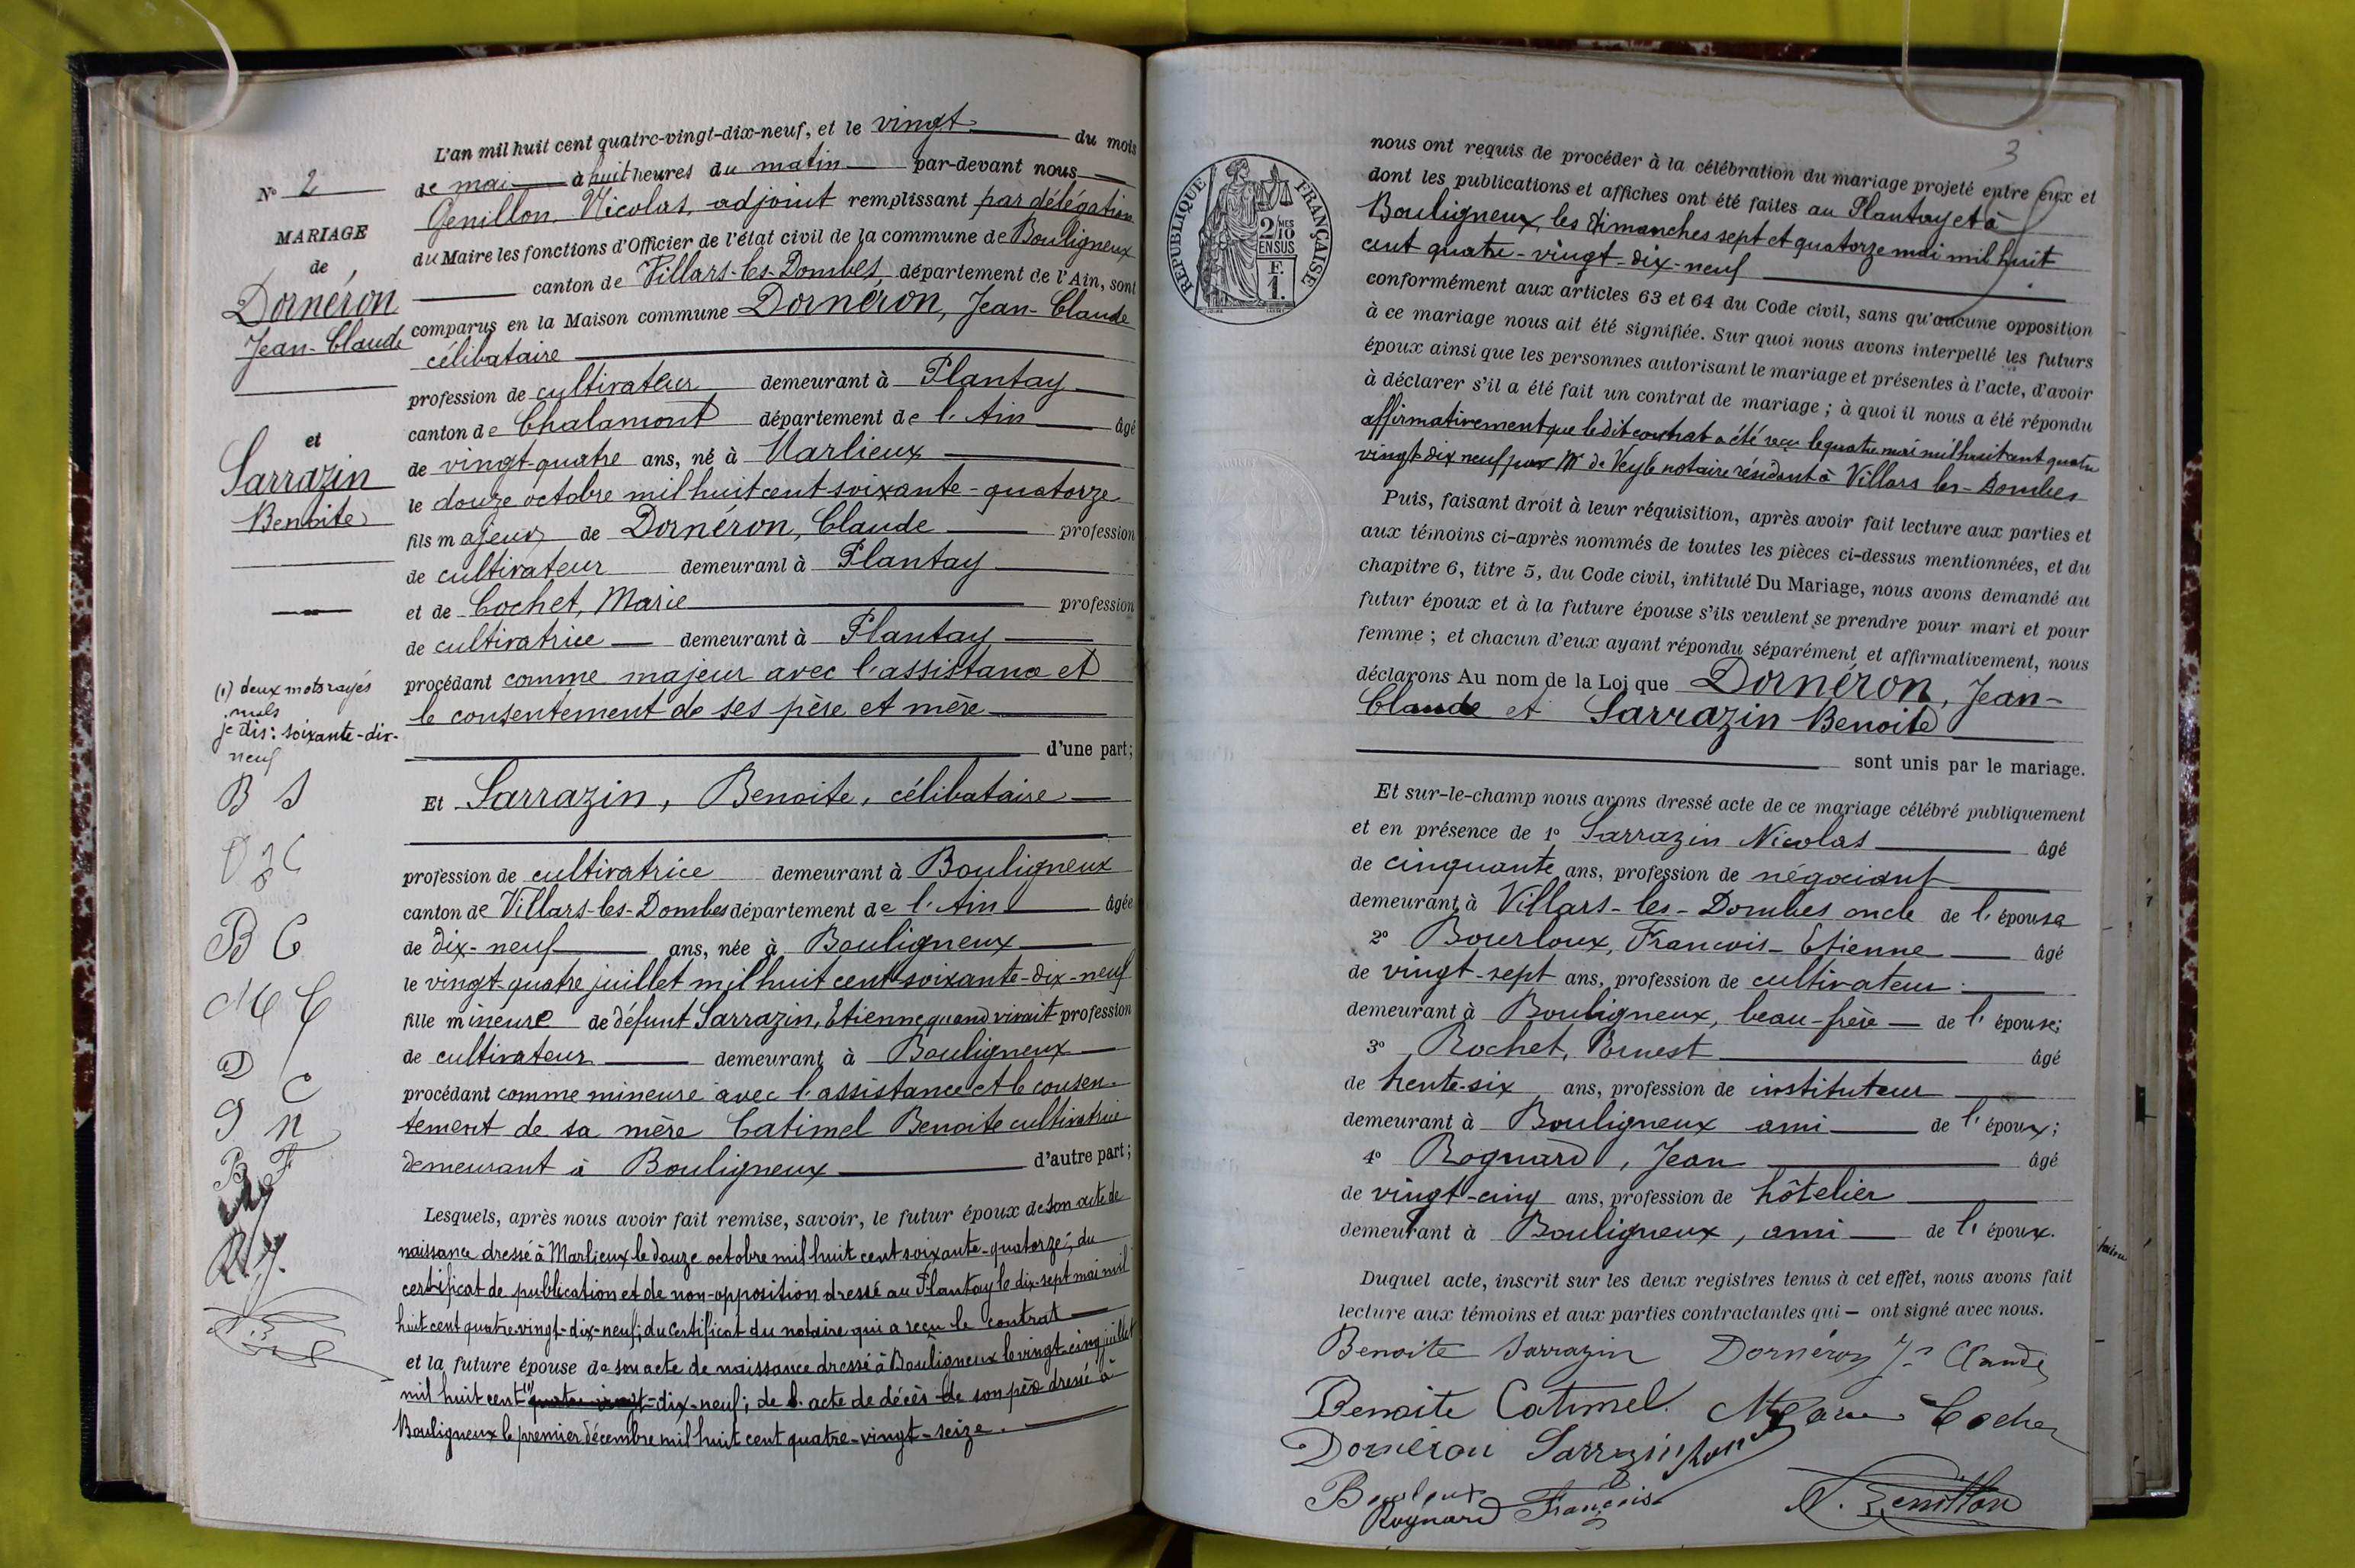 N° 2
MARIAGE
de
Dornéron
Jean-Claude
et
Sarrazin
Benoite
(1) deux mots rayés
nuls
je dis: soixante-dix-
neuf
B S
B C
M C
D
C
G N
B F
L'an mil huit cent quatre-vingt-dix-neuf, et le vingt du mois
de mai à huit heures du matin par-devant nous
Genillon Nicolas, adjoint remplissant par délégation
du Maire les fonctions d'Officier de l'état civil de la commune de Bouligneux
canton de Villars-les-Dombes département de l'Ain, sont
comparus en la Maison commune Dornéron, Jean-Claude
célibataire
profession de cultivateur demeurant à Plantay
canton de Chalamont département de l'Ain âgé
de vingt-quatre ans, né à Marlieux
le douze octobre mil huit cent soixante-quatorze
fils majeur de Dornéron, Claude profession
de cultivateur demeurant à Plantay
et de Cochet, Marie profession
de cultivatrice demeurant à Plantay
procédant comme majeur avec l'assistance et
le consentement de ses père et mère
d'une part;
Et Sarrazin, Benoite, célibataire
profession de cultivatrice demeurant à Bouligneux
canton de Villars-les-Dombes département de l'Ain âgée
de dix-neuf ans, née à Bouligneux
le vingt-quatre juillet mil huit cent soixante-dix-neuf
fille mineure de défunt Sarrazin, Etienne quand vivait profession
de cultivateur demeurant à Bouligneux
procédant comme mineure avec l'assistance et le consen-
tement de sa mère Catimel Benoite cultivatrice
demeurant à Bouligneux d'autre part;
Lesquels, après nous avoir fait remise, savoir, le futur époux de son acte de
naissance dressé à Marlieux le douze octobre mil huit cent soixante-quatorze; du
certificat de publication et de non-opposition dressé au Plantay le dix-sept mai mil
huit cent quatre-vingt-dix-neuf; du certificat du notaire qui a reçu le contrat
et la future épouse de son acte de naissance dressé à Bouligneux le vingt-cinq juillet
mil huit cent (1) quatre-vingt-dix-neuf; de l'acte de décès de son père dressé à
Bouligneux le premier décembre mil huit cent quatre-vingt-seize.
3
RÉPUBLIQUE FRANÇAISE
2 MES
/10
EN SUS
F.
1.
nous ont requis de procéder à la célébration du mariage projeté entre eux et
dont les publications et affiches ont été faites au Plantay et à
Bouligneux, les dimanches sept et quatorze mai mil huit
cent quatre-vingt-dix-neuf
conformément aux articles 63 et 64 du Code civil, sans qu'aucune opposition
à ce mariage nous ait été signifiée. Sur quoi nous avons interpellé les futurs
époux ainsi que les personnes autorisant le mariage et présentes à l'acte, d'avoir
à déclarer s'il a été fait un contrat de mariage; à quoi il nous a été répondu
affirmativement que le dit contrat a été reçu le quatre mai mil huit cent quatre
vingt dix neuf par Me de Veyle notaire résidant à Villars les-Dombes
Puis, faisant droit à leur réquisition, après avoir fait lecture aux parties et
aux témoins ci-après nommés de toutes les pièces ci-dessus mentionnées, et du
chapitre 6, titre 5, du Code civil, intitulé Du Mariage, nous avons demandé au
futur époux et à la future épouse s'ils veulent se prendre pour mari et pour
femme; et chacun d'eux ayant répondu séparément et affirmativement, nous
déclarons Au nom de la Loi que Dornéron, Jean-
Claude et Sarrazin Benoite
sont unis par le mariage.
Et sur-le-champ nous avons dressé acte de ce mariage célébré publiquement
et en présence de 1° Sarrazin Nicolas âgé
de cinquante ans, profession de négociant
demeurant à Villars-les-Dombes oncle de l'épouse
2° Bourloux, François-Etienne âgé
de vingt-sept ans, profession de cultivateur
demeurant à Bouligneux, beau-frère de l'épouse;
3° Rochet, Ernest âgé
de trente-six ans, profession de instituteur
demeurant à Bouligneux ami de l'époux;
4° Rognard, Jean âgé
de vingt-cinq ans, profession de hôtelier
demeurant à Bouligneux, ami de l'époux.
Duquel acte, inscrit sur les deux registres tenus à cet effet, nous avons fait
lecture aux témoins et aux parties contractantes qui ont signé avec nous.
Benoite Sarrazin Dornéron Jn Claude
Benoite Catimel Marie Coche
Dornéron Sarrazin
Bourloux François
Rognard
N. Genillon